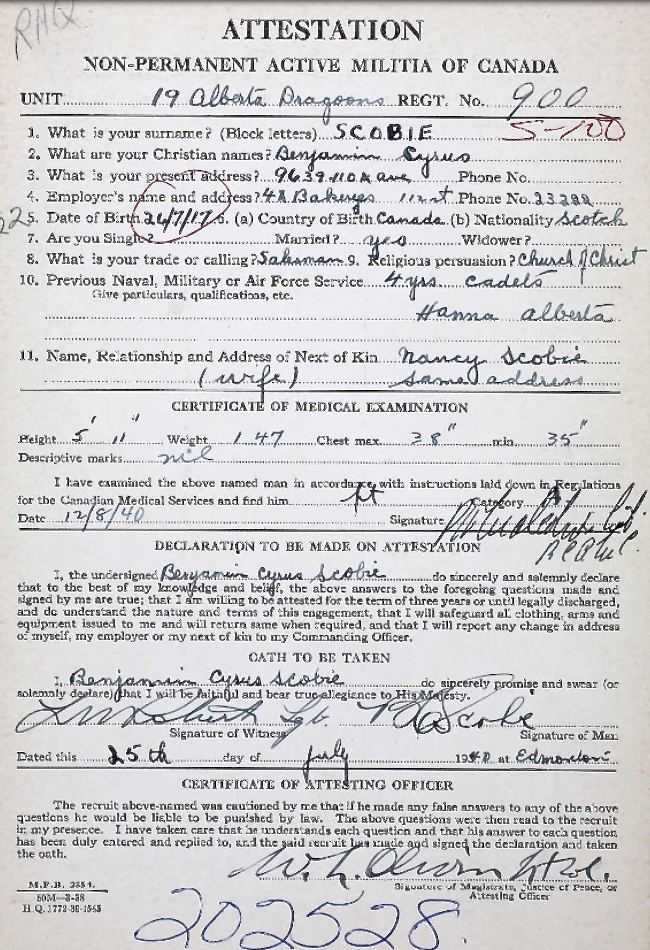 RHQ
ATTESTATION
NON-PERMANENT ACTIVE MILITIA OF CANADA
UNIT 19 Alberta Dragoons REGT. No. 900
1. What is your surname? (Block letters) SCOBIE 5-100
2. What are your Christian names? Benjamin Cyrus
3. What is your present address? 9639 110A ave Phone No.
4. Employer's name and address? 4X Bakerys 111 st Phone No. 23288
22 5. Date of Birth 26/7/17 6. (a) Country of Birth Canada (b) Nationality Scotch
7. Are you Single? Married? yes Widower?
8. What is your trade or calling? Salesman 9. Religious persuasion? Church of Christ
10. Previous Naval, Military or Air Force Service 4 yrs. cadets
Give particulars, qualifications, etc.
Hanna Alberta
11. Name, Relationship and Address of Next of Kin Nancy Scobie
(wife) same address
CERTIFICATE OF MEDICAL EXAMINATION
Height 5' 11" Weight 147 Chest max. 38" min. 35"
Descriptive marks nil
I have examined the above named man in accordance with instructions laid down in Regulations
for the Canadian Medical Services and find him fit Category A
Date 12/8/40 Signature
DECLARATION TO BE MADE ON ATTESTATION
I, the undersigned Benjamin Cyrus Scobie do sincerely and solemnly declare
that to the best of my knowledge and belief, the above answers to the foregoing questions made and
signed by me are true; that I am willing to be attested for the term of three years or until legally discharged,
and do understand the nature and terms of this engagement, that I will safeguard all clothing, arms and
equipment issued to me and will return same when required, and that I will report any change in address
of myself, my employer or my next of kin to my Commanding Officer.
OATH TO BE TAKEN
I, Benjamin Cyrus Scobie do sincerely promise and swear (or
solemnly declare) that I will be faithful and bear true allegiance to His Majesty.
B C Scobie
Signature of Witness Signature of Man
Dated this 25th day of July 1940 at Edmonton
CERTIFICATE OF ATTESTING OFFICER
The recruit above-named was cautioned by me that if he made any false answers to any of the above
questions he would be liable to be punished by law. The above questions were then read to the recruit
in my presence. I have taken care that he understands each question and that his answer to each question
has been duly entered and replied to, and the said recruit has made and signed the declaration and taken
the oath.
Signature of Magistrate, Justice of Peace, or
Attesting Officer
M.F.B. 2354.
50M—3-38
H.Q. 1772-39-1565
202528.